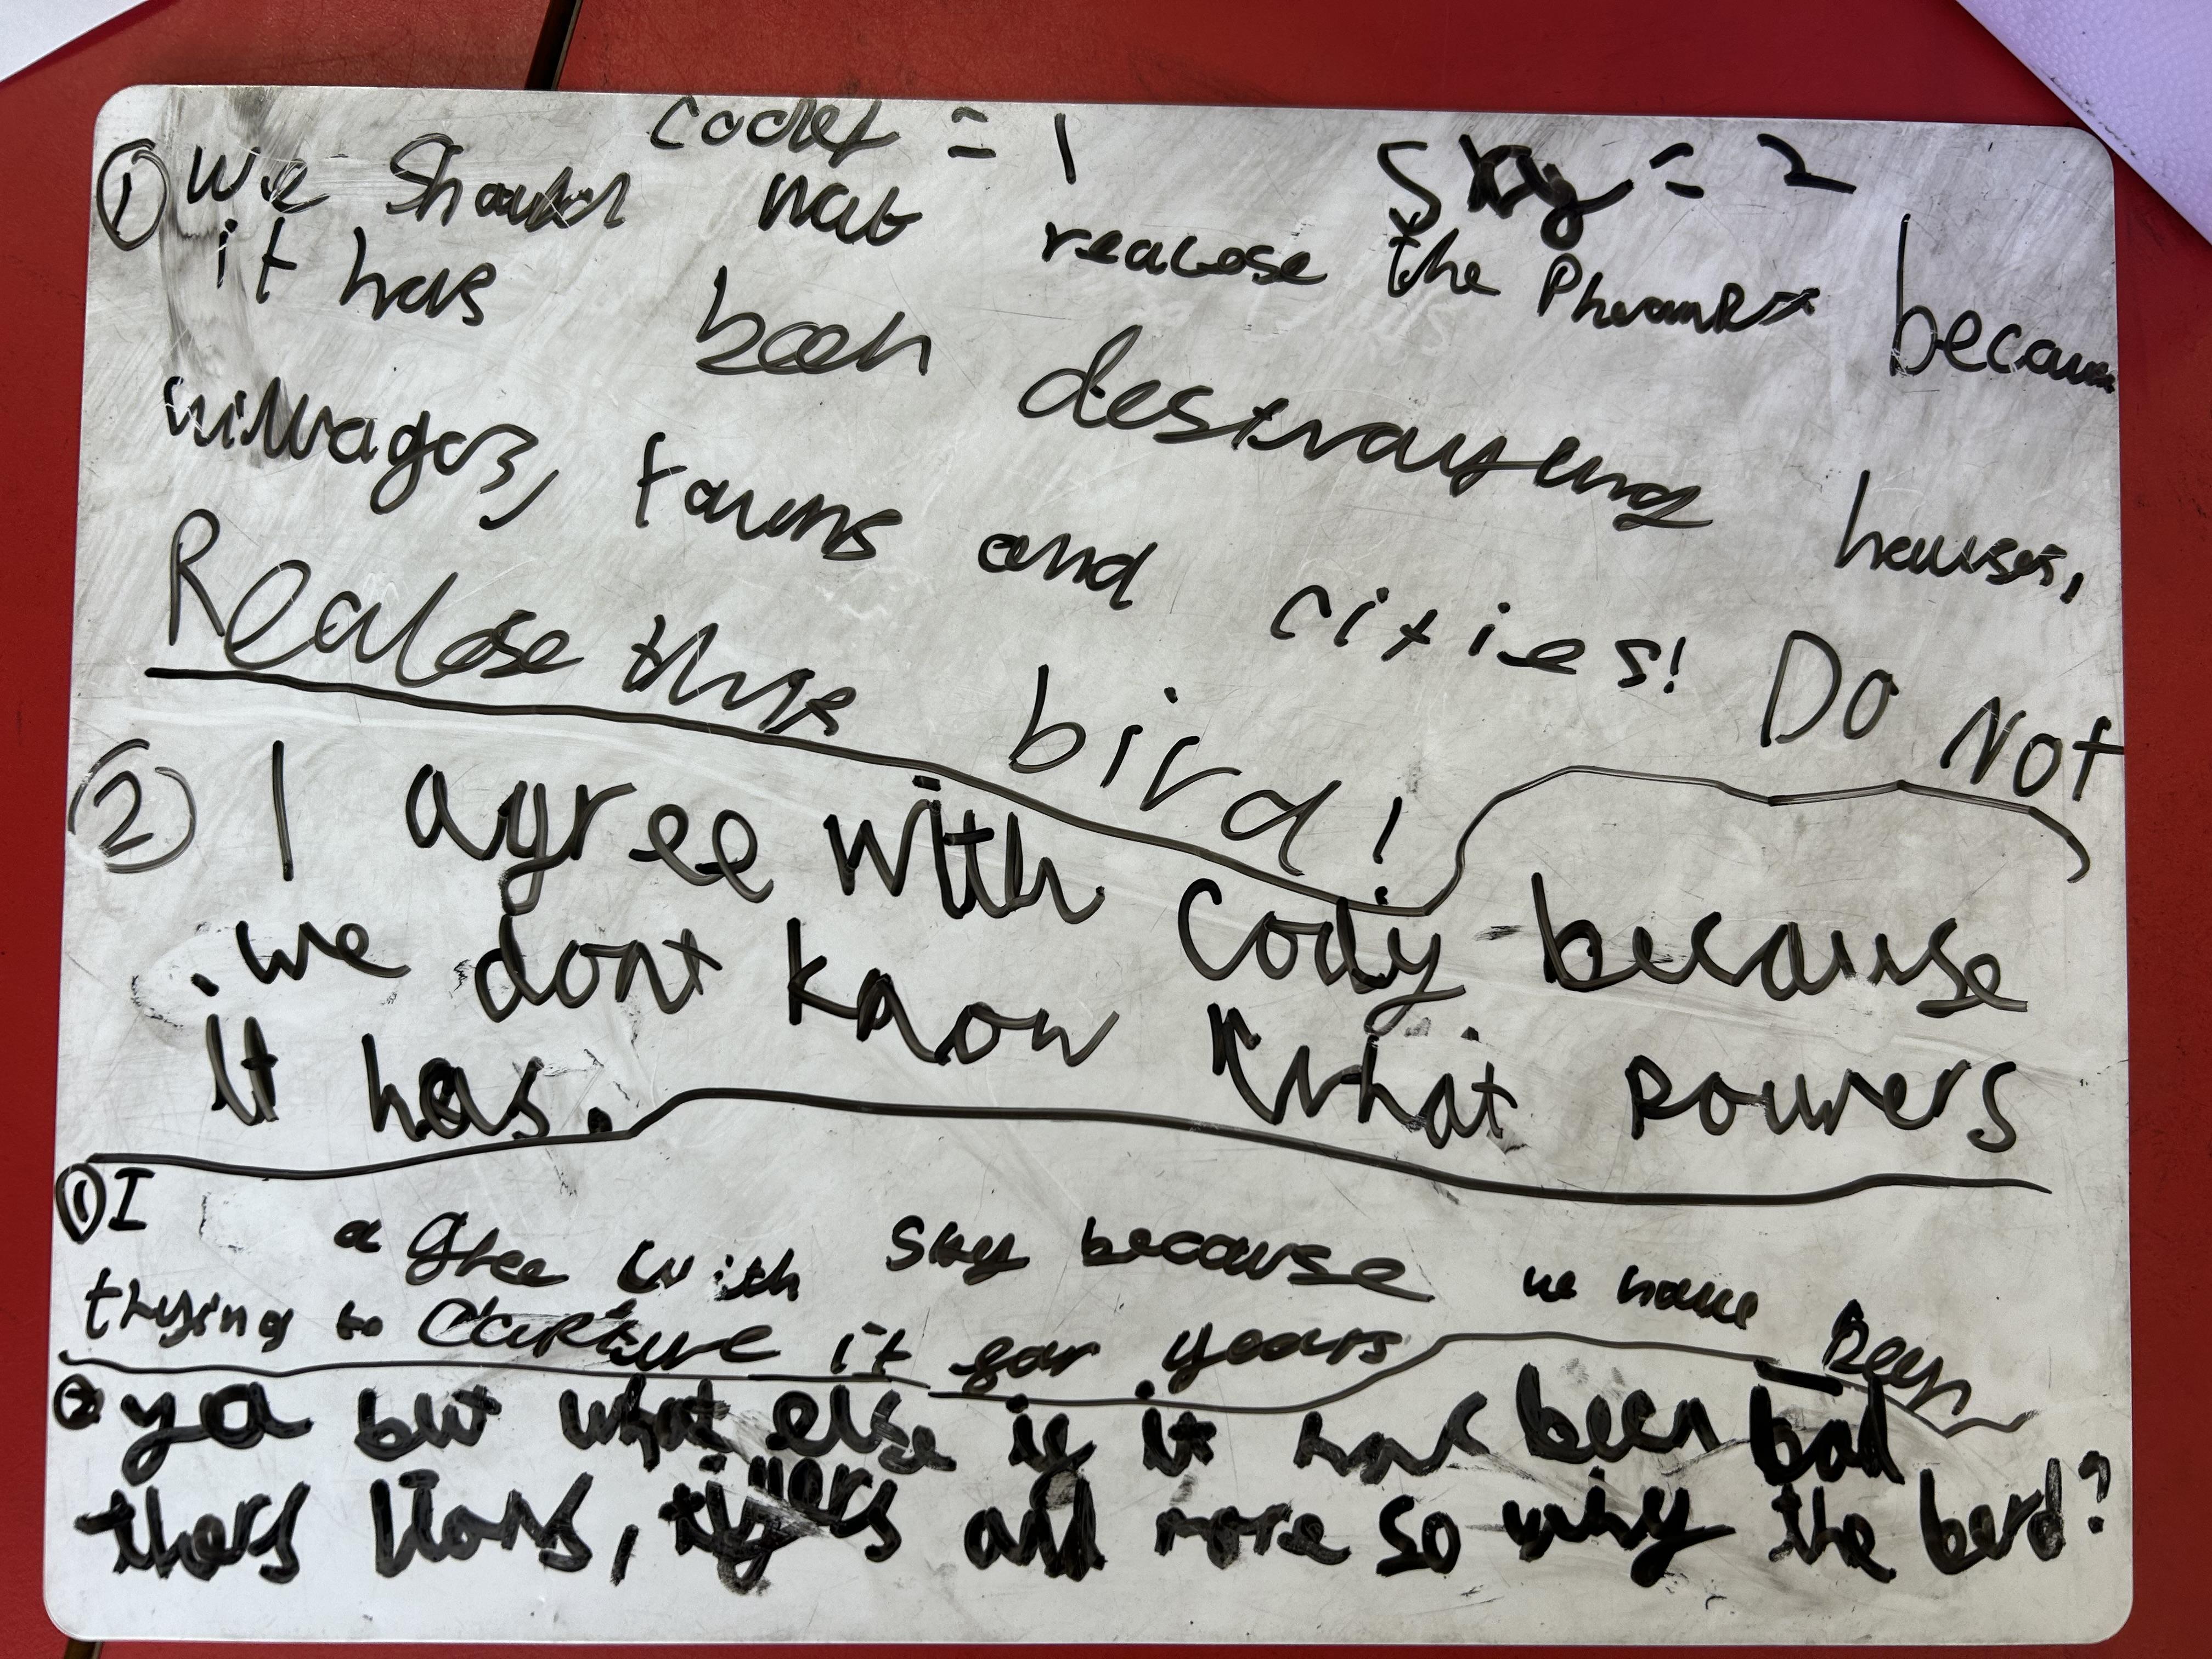 = 1 Sky = 2
① we should not realose the Pheonix because
it has been destroying houses,
villages, towns and cities! DO NOT
Realose this bird!
② I agree with Cody because
we dont know what powers
it has.
① I agree with Sky because we have Been
trying to capture it for years
② ya but what else if it have been bad
thers lions, tigers and more so why the berd?